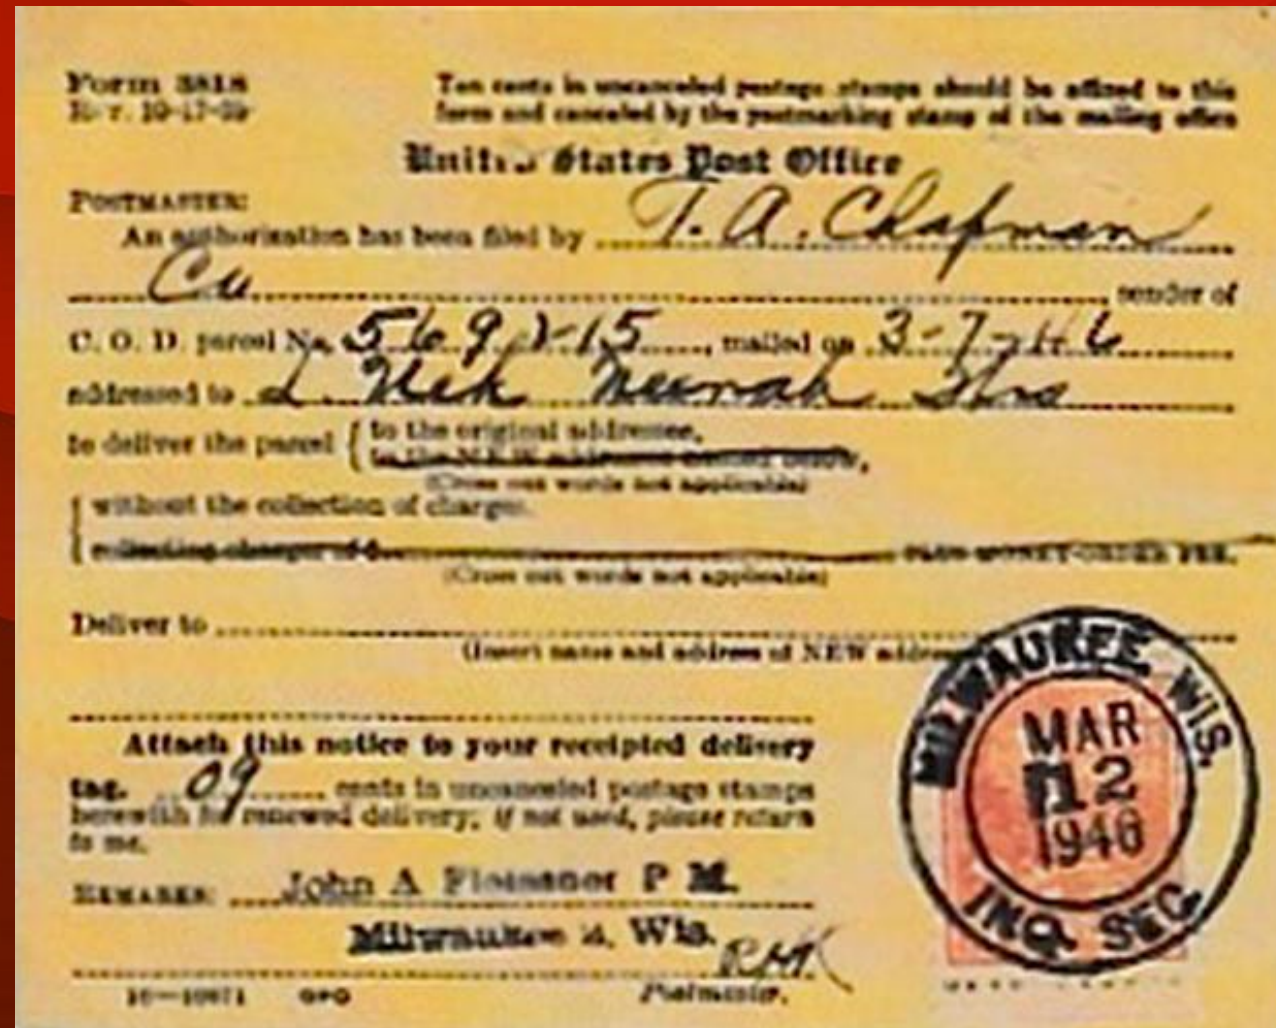 Form 3818
Rev. 10-17-39
Ten cents in uncanceled postage stamps should be affixed to this
form and canceled by the postmarking stamp of the mailing office
United States Post Office
POSTMASTER:
An authorization has been filed by T. A. Chapman
Co sender of
C. O. D. parcel No. 569215, mailed on 3-7-46
addressed to L. Neenah
to deliver the parcel { to the original addressee,
to the NEW addressee named below,
(Cross out words not applicable)
{ without the collection of charges.
collecting charges of $ PLUS MONEY-ORDER FEE.
(Cross out words not applicable)
Deliver to
(Insert name and address of NEW addressee)
Attach this notice to your receipted delivery
tag. 09 cents in uncanceled postage stamps
herewith for renewed delivery; if not used, please return
to me.
REMARKS: John A P M.
Milwaukee Wis.
Postmaster.
GPO
MILWAUKEE, WIS.
MAR
12
1946
INQ. SEC.